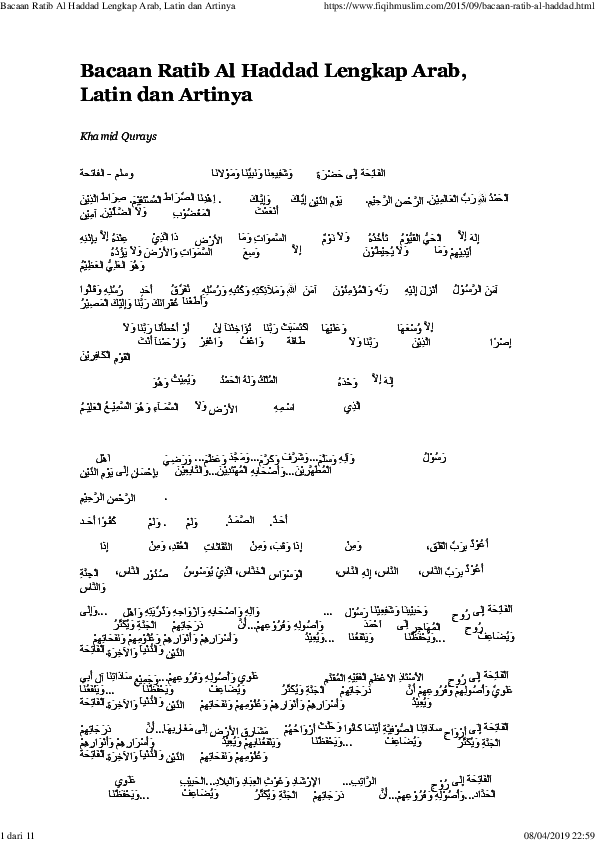 Bacaan Ratib Al Haddad Lengkap Arab, Latin dan Artinya https://www.fiqihmuslim.com/2015/09/bacaan-ratib-al-haddad.html
Bacaan Ratib Al Haddad Lengkap Arab,
Latin dan Artinya
Khamid Qurays
الفَاتِحَة إِلَى حَضْرَةِ وَشَفِيعِنَا وَنَبِيِّنَا وَمَوْلَانَا وسلم - الفاتحة
الْحَمْدُ للهِ رَبِّ الْعَالَمِيْنَ. الرَّحْمنِ الرَّحِيْمِ. يَوْمِ الدِّيْنِ إِيَّاكَ وَإِيَّاكَ . اِهْدِنَا الصِّرَاطَ الْمُسْتَقِيْمَ. صِرَاطَ الَّذِيْنَ
أَنْعَمْتَ الْمَغْضُوْبِ وَلاَ الضَّآلِّيْنَ. آمِيْنِ
إِلهَ إِلاَّ الْحَيُّ الْقَيُّوْمُ تَأْخُذُهُ وَلاَ نَوْمٌ السَّموَاتِ وَمَا الأَرْضِ ذَا الَّذِيْ عِنْدَهُ إِلاَّ بِإِذْنِهِ
أَيْدِيْهِمْ وَمَا وَلاَ يُحِيْطُوْنَ إِلاَّ وَسِعَ السَّموَاتِ وَالأَرْضَ وَلاَ يَؤُدُهُ
وَهُوَ الْعَلِيُّ الْعَظِيْمُ
آمَنَ الرَّسُوْلُ أُنْزِلَ إِلَيْهِ رَبِّهِ وَالْمُؤْمِنُوْنَ آمَنَ اللهِ وَمَلآئِكَتِهِ وَكُتُبِهِ وَرُسُلِهِ نُفَرِّقُ أَحَدٍ رُسُلِهِ وَقَالُوا
وَأَطَعْنَا غُفْرَانَكَ رَبَّنَا وَإِلَيْكَ الْمَصِيْرُ
إِلاَّ وُسْعَهَا وَعَلَيْهَا اكْتَسَبَتْ رَبَّنَا تُؤَاخِذْنَا إِنْ أَوْ أَخْطَأْنَا رَبَّنَا وَلاَ
إِصْرًا الَّذِيْنَ رَبَّنَا وَلاَ طَاقَةَ وَاعْفُ وَاغْفِرْ وَارْحَمْنَا أَنْتَ
الْقَوْمِ الْكَافِرِيْنَ
إِلهَ إِلاَّ وَحْدَهُ الْمُلْكُ وَلَهُ الْحَمْدُ وَيُمِيْتُ وَهُوَ
الَّذِي اسْمِهِ الأَرْضِ وَلاَ السَّمَآءِ وَهُوَ السَّمِيْعُ الْعَلِيْمُ
رَسُوْلُ وَآلِهِ وَسَلِّمْ...وَشَرَّفَ وَكَرَّمَ...وَمَجَّدَ وَعَظَّمَ... وَرَضِيَ اَهْلِ
الْمُطَهَّرِيْنَ...وَأَصْحَابِهِ الْمُهْتَدِيْنَ...وَالتَّابِعِيْنَ بِإِحْسَانٍ إِلَى يَوْمِ الدِّيْنِ
الرَّحْمنِ الرَّحِيْمِ .
أَحَدٌ. الصَّمَدُ. وَلَمْ . وَلَمْ كُفُوًا أَحَد
أَعُوْذُ بِرَبِّ الْفَلَقِ، وَمِنْ إِذَا وَقَبَ، وَمِنْ النَّفَّاثَاتِ الْعُقَدِ، وَمِنْ إِذَا
أَعُوْذُ بِرَبِّ النَّاسِ، النَّاسِ، إِلهِ النَّاسِ، الْوَسْوَاسِ الْخَنَّاسِ، الَّذِيْ يُوَسْوِسُ صُدُوْرِ النَّاسِ، الْجِنَّةِ
وَالنَّاسِ
الْفَاتِحَة إِلَى رُوحِ وَحَبِيْبِنَا وَشَفِيْعِنَا رَسُوْلِ ... وَآلِهِ وَاصْحَابِهِ وَازْوَاجِهِ وَذُرِّيَّتِهِ وَاهْلِ ...وَإِلَى
رُوحِ الْمُهَاجِرِ إِلَى أَحْمَدَ وَأُصُولِهِ وَفُرُوْعِهِمْ...أَنَّ دَرَجَاتِهِمْ الْجَنَّةِ وَيُكَثِّرُ
وَيُضَاعِفُ ...وَيَحْفَظُنَا وَيَنْفَعُنَا ...وَيُعِيْدُ وَأَسْرَارِهِمْ وَأَنْوَارِهِمْ وَعُلُوْمِهِمْ وَنَفَحَاتِهِمْ
الدِّيْنِ وَالدُّنْيَا وَالآخِرَةِ. الْفَاتِحَة
الْفَاتِحَة إِلَى رُوحِ الْأُسْتَاذِ الأَعْظَمِ الْفَقِيْهِ الْمُقَدَّمِ عَلَوِي وَأُصُولِهِ وَفُرُوْعِهِمْ...وَجَمِيْعِ سَادَاتِنَا آلِ أَبِي
عَلَوِيْ وَأُصُولِهِمْ وَفُرُوْعِهِمْ أَنَّ دَرَجَاتِهِمْ الْجَنَّةِ وَيُكَثِّرُ وَيُضَاعِفُ ...وَيَحْفَظُنَا ...وَيَنْفَعُنَا
وَيُعِيْدُ وَأَسْرَارِهِمْ وَأَنْوَارِهِمْ وَعُلُوْمِهِمْ وَنَفَحَاتِهِمْ الدِّيْنِ وَالدُّنْيَا وَالآخِرَةِ. الْفَاتِحَة
الْفَاتِحَة إِلَى أَرْوَاحِ سَادَاتِنَا الصُّوْفِيَّةِ أَيْنَمَا كَانُوا وَحَلَّتْ أَرْوَاحُهُمْ مَشَارِقِ الأَرْضِ إِلَى مَغَارِبِهَا...أَنَّ دَرَجَاتِهِمْ
الْجَنَّةِ وَيُكَثِّرُ وَيُضَاعِفُ ...وَيَحْفَظُنَا وَيَنْفَعُنَابِهِمْ وَيُعِيْدُ وَأَسْرَارِهِمْ وَأَنْوَارِهِمْ
وَعُلُوْمِهِمْ وَنَفَحَاتِهِمْ الدِّيْنِ وَالدُّنْيَا وَالآخِرَةِ. الْفَاتِحَة
الْفَاتِحَة إِلَى رُوْحِ الرَّاتِبِ... الإِرْشَادِ وَغَوْثِ الْعِبَادِ وَالْبِلاَدِ...الْحَبِيْبِ عَلَوِي
الْحَدَّاد...وَأُصُوْلِهِ وَفُرُوْعِهِمْ...أَنَّ دَرَجَاتِهِمْ الْجَنَّةِ وَيُكَثِّرُ وَيُضَاعِفُ ...وَيَحْفَظُنَا
1 dari 11 08/04/2019 22:59